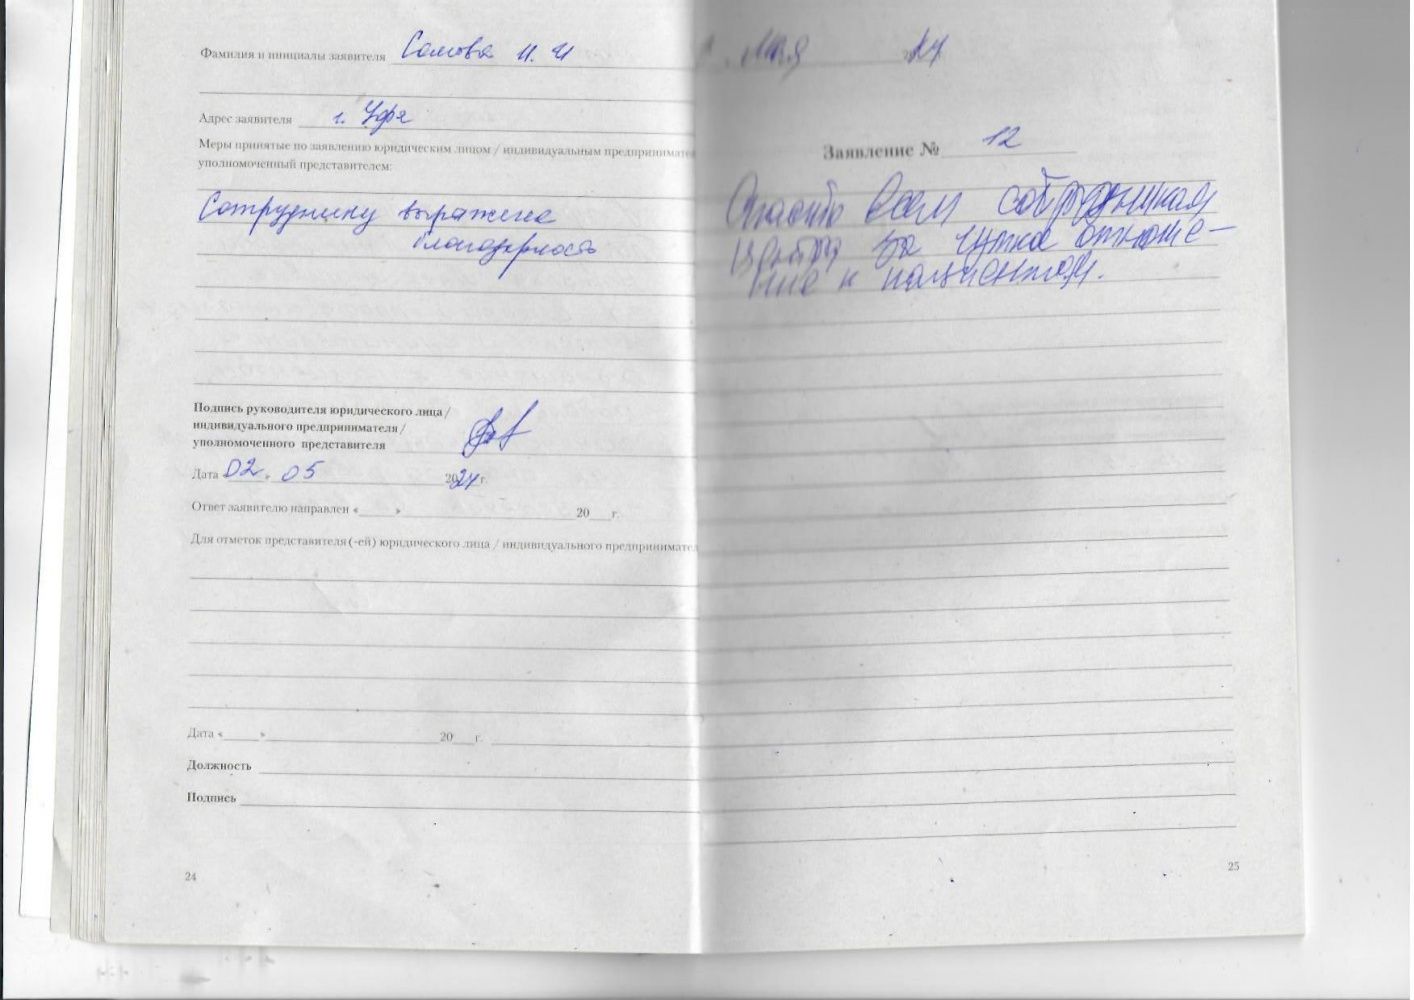 Фамилия и инициалы заявителя Сомова И. И
Адрес заявителя г. Уфа
Меры принятые по заявлению юридическим лицом / индивидуальным предпринимате
уполномоченный представителем:
Сотруднику выражена
благодарность
Подпись руководителя юридического лица/
индивидуального предпринимателя/
уполномоченного представителя
Дата 02. 05 2024 г.
Ответ заявителю направлен «____» 20___г.
Для отметок представителя (-ей) юридического лица / индивидуального предпринимател
Дата «_____» 20___г.
Должность
Подпись
24
мая 24
Заявление № 12
Спасибо всем сотрудникам
центра за чуткое отноше-
ние к пациентам.
25